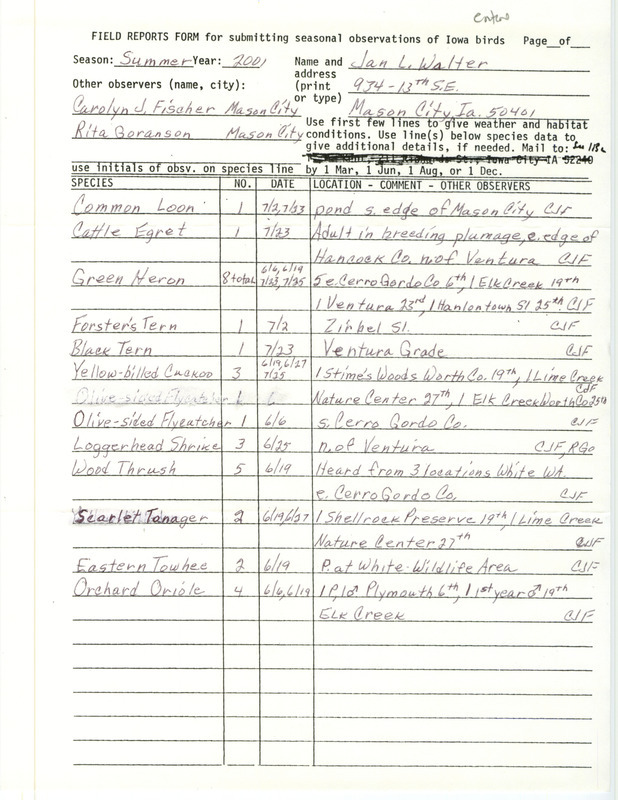 enters
FIELD REPORTS FORM for submitting seasonal observations of Iowa birds Page__of__
Season: Summer Year: 2001 Name and address (print or type) Jan L. Walter
934-13th S.E.
Mason City Ia. 50401
Other observers (name, city):
Carolyn J. Fischer Mason City
Rita Goranson Mason City
Use first few lines to give weather and habitat
conditions. Use line(s) below species data to
give additional details, if needed. Mail to:
St., Iowa City IA 52240
use initials of obsv. on species line by 1 Mar, 1 Jun, 1 Aug, or 1 Dec.
SPECIES NO. DATE LOCATION - COMMENT - OTHER OBSERVERS
Common Loon 1 7/2,7/23 pond s. edge of Mason City CJF
Cattle Egret 1 7/23 Adult in breeding plumage, e. edge of
Hancock Co. n. of Ventura CJF
Green Heron 8 total 6/6, 6/19 7/23, 7/25 5 e. Cerro Gordo Co 6th, 1 Elk Creek 19th
1 Ventura 23rd, 1 Hanlontown Sl 25th CJF
Forster's Tern 1 7/2 Zirbel Sl. CJF
Black Tern 1 7/23 Ventura Grade CJF
Yellow-billed Cuckoo 3 6/19,6/27 7/25 1 Stime's Woods Worth Co. 19th, 1 Lime Creek
CJF
Olive-sided Flycatcher 1 6 Nature Center 27th, 1 Elk Creek Worth Co 25th
Olive-sided Flycatcher 1 6/6 s. Cerro Gordo Co. CJF
Loggerhead Shrike 3 6/25 n. of Ventura CJF, RGo
Wood Thrush 5 6/19 Heard from 3 locations White WA.
e. Cerro Gordo Co. CJF
Scarlet Tanager 2 6/19,6/27 1 Shellrock Preserve 19th, 1 Lime Creek
Nature Center 27th CJF
Eastern Towhee 2 6/19 P. at White Wildlife Area CJF
Orchard Oriole 4 6/6, 6/19 1 P, 1♂ Plymouth 6th, 1 1st year ♂ 19th
Elk Creek CJF